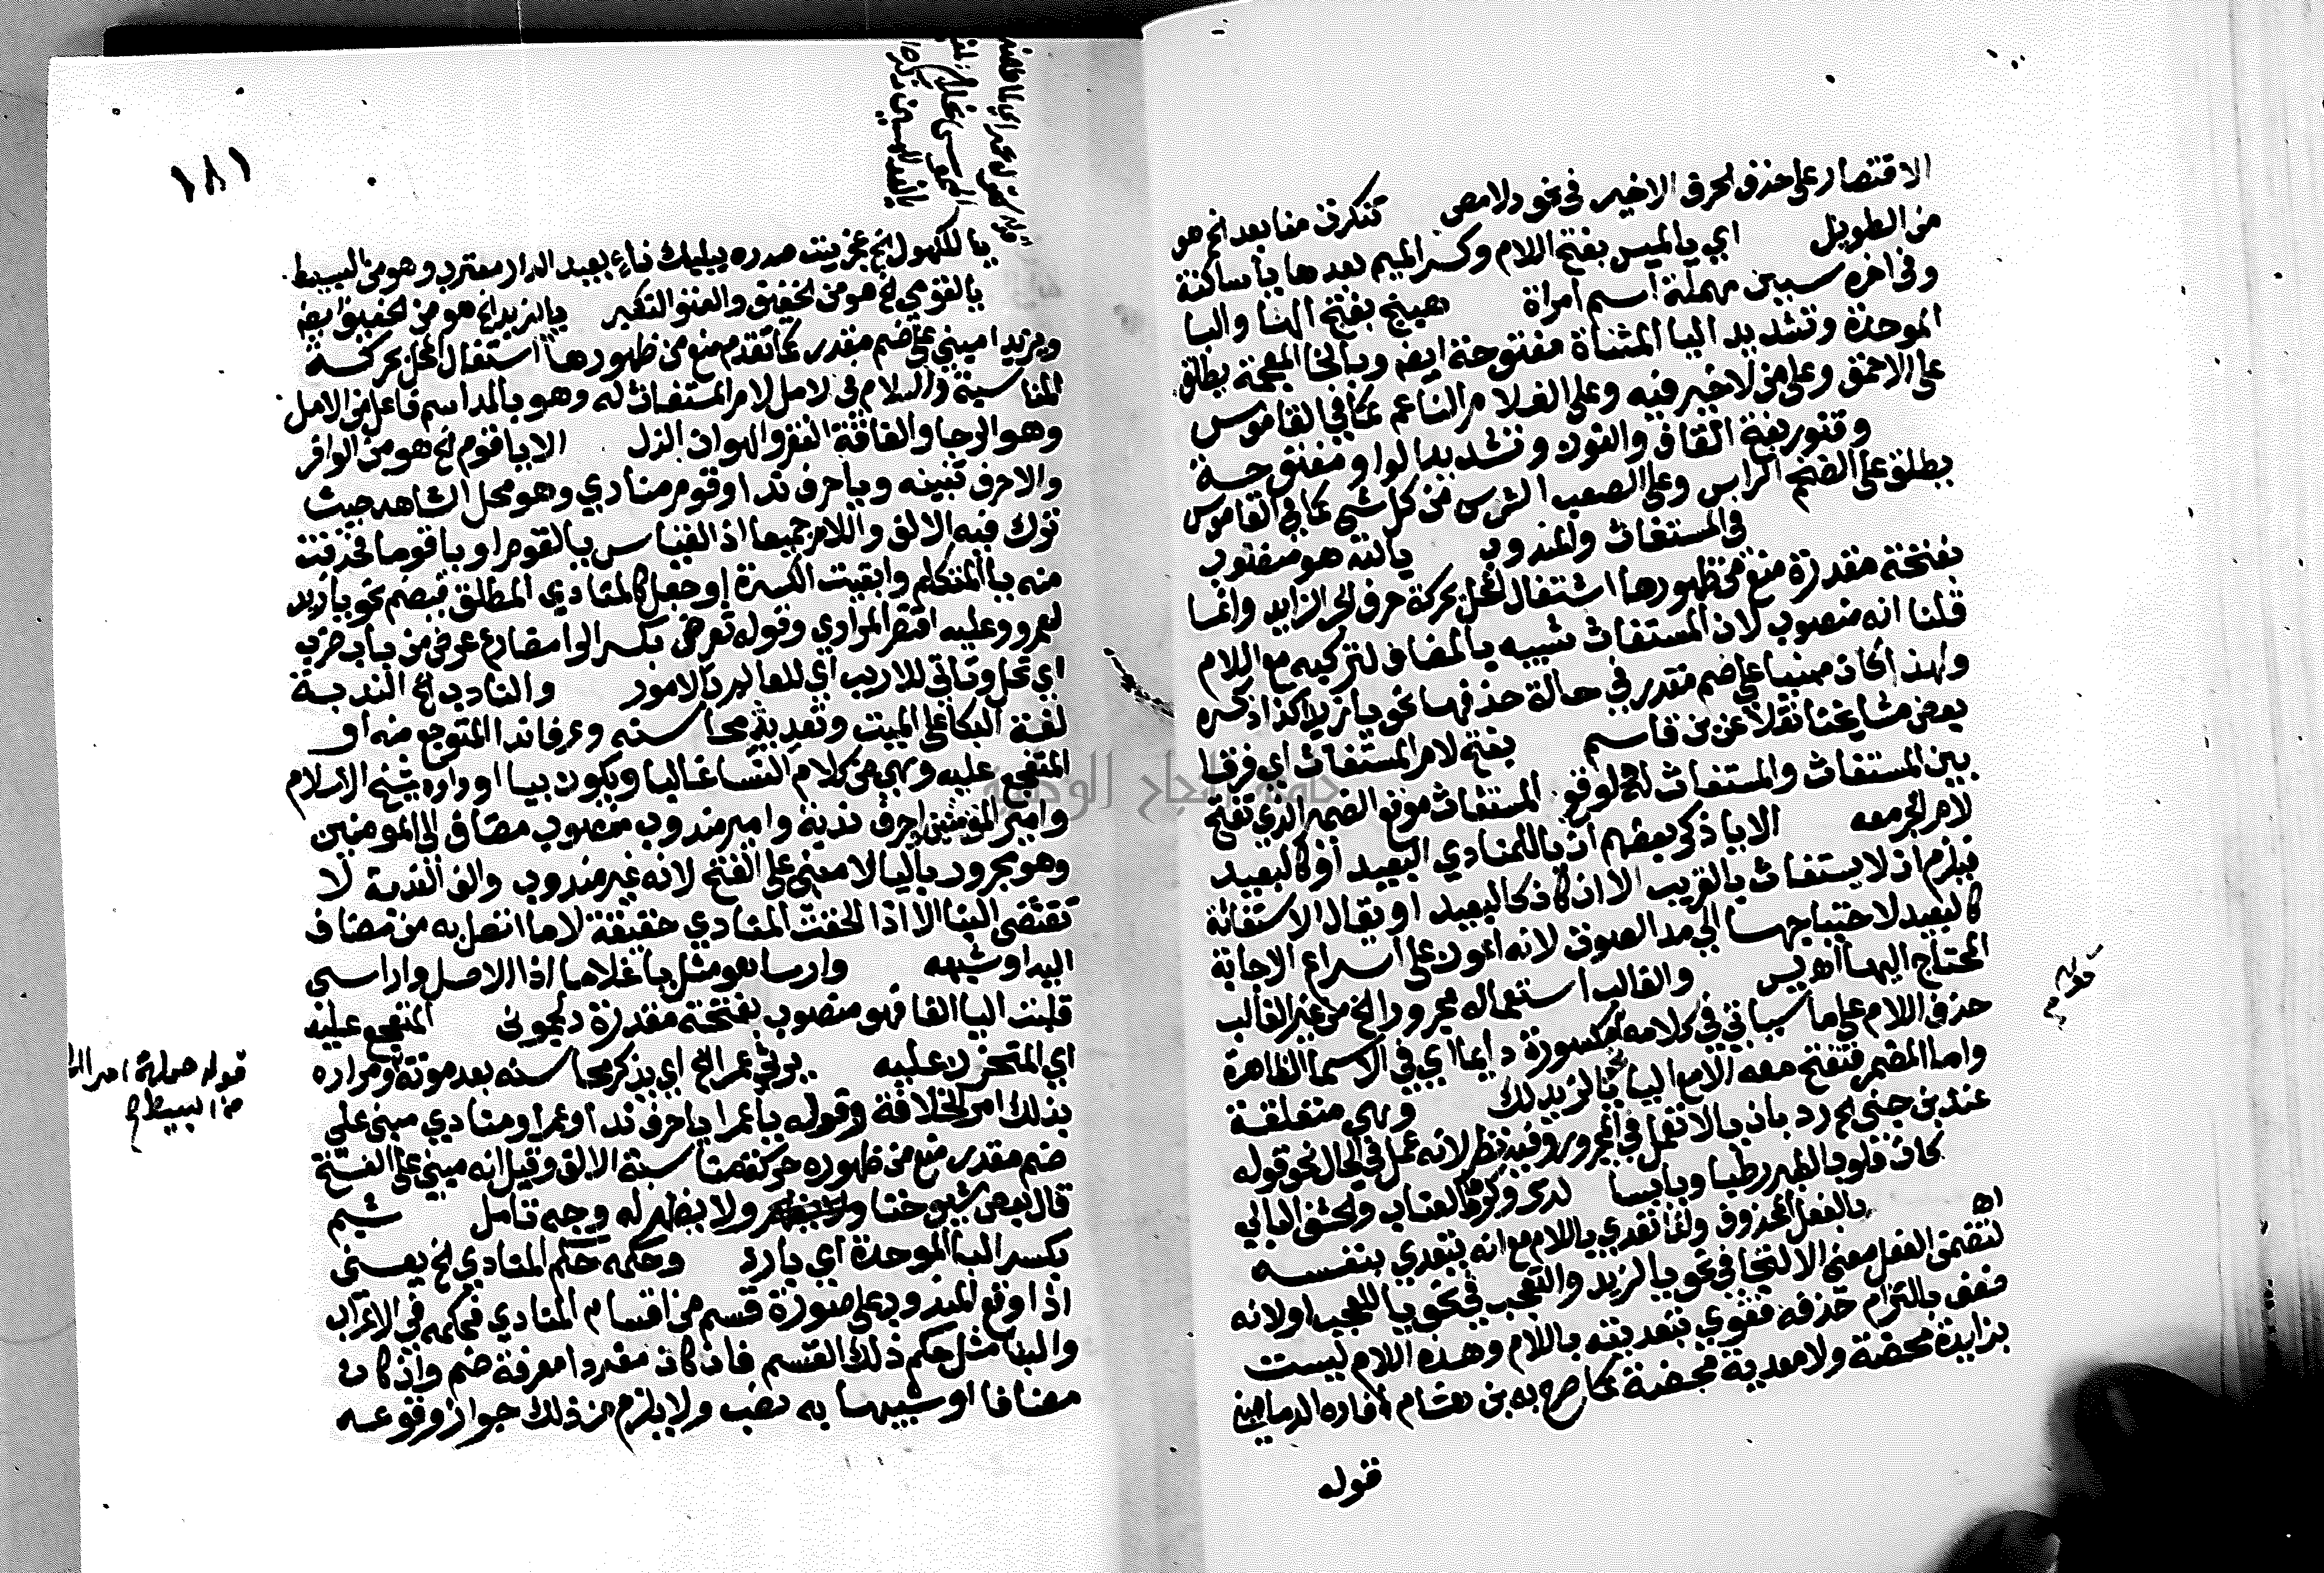 الاقتصار على حذف الحرف الاخير في نحو دلامص تنكرت منا بعد الخ هو
من الطويل اي يا لميس بفتح اللام وكسر الميم بعدها يا ساكنة
وفي اخره سين مهملة اسم امراة هبيخ بفتح الها والبا
الموحدة وتشديد اليا المثناة مفتوحة ايض وبالخا المعجمة يطلق
على الاحمق وعلى من لا خير فيه وعلى الغلام الناعم كما في القاموس
وقنور بفتح القاف والنون وتشديد الواو مفتوحة
يطلق على الضخم الراس وعلى الصعب الشرس من كل شي كما في القاموس
في المستغاث والمندوب يا لله هو منصوب
بفتحة مقدرة منع من ظهورها اشتغال المحل بحركة حرف الجر الزايد وانما
قلنا انه منصوب لان المستغاث شبيه بالمضاف لتركبه مع اللام
ولهذا كان مبنيا على ضم مقدر في حالة حذفها نحو يا زيدا كذا ذكره
بعض مشايخنا نقلا عن بن قاسم بفتح لام المستغاث اي فرقا
بين المستغاث والمستغاث له لوقوع المستغاث موقع الضمير الذي تفتح
لام الجر معه الا يا ذكر بعضهم ان يا للمنادي البعيد او كالبعيد
فيلزم ان لا يستغاث بالقريب الا ان كان كالبعيد او يقال الاستغاثة
كالبعيد لاحتياجها الي مد الصوت لانه اعون على اسراع الاجابة
المحتاج اليها اهـ يس والغالب استعماله مجرورا الخ من غير الغالب
حذف اللام على ما سياتي في كلامه مكسورة دايما اي في الاسما الظاهرة
واما المضمر فتفتح معه الا مع اليا نحو يا لزيد لك وهي متعلقة
عند بن جني الخ رد بان يا لا تعمل في المجرور وفيه نظر لانه عمل في الحال نحو قوله
كان قلوب الطير رطبا ويابسا لدى وكرها العناب والحشف البالي
اهـ بالفعل المحذوف ولنا تعدي باللام مع انه يتعدي بنفسه
لتضمن الفعل معنى الالتجا في نحو يا لزيد والتعجب في نحو يا للعجب او لانه
ضعف بالتزام حذفه فقوي بتعديته باللام وهذه اللام ليست
بزايدة محضة ولا معدية محضة كما صرح به بن هشام افاده الدماميني
قوله
١٨١
يا للكهول الخ عجز بيت صدره يبكيك ناء بعيد الدار مغترب وهو من البسيط
يا لقومي الخ هو من الخفيف والعتو التكبر يا لزيد الخ هو من الخفيف ايض
ويزيدا مبني على ضم مقدر كما تقدم منع من ظهورها اشتغال المحل بحركة
المناسبة واللام في لامل لام المستغاث له وهو بالمد اسم فاعل من الامل
وهو الرجا والفاقة الفقر والهوان الذل الا يا قوم الخ هو من الوافر
والا حرف تنبيه ويا حرف ندا وقوم منادي وهو محل الشاهد حيث
ترك فيه الالف واللام جميعا اذ القياس يا لقوم او يا قوما فحذفت
منه يا المتكلم وابقيت الكسرة او جعل كالمنادي المطلق فيضم نحو يا زيد
لعمرو وعليه اقتصر المرادي وقوله تعرض بكسر الرا مضارع عرض من باب ضرب
اي تحل وتاتي للاريب اي للعالم بالامور والنادب الخ الندبة
لغة البكا على الميت وتعديد محاسنه وعرفا ندا المتوجع منه او
المتفجع عليه وهي من كلام النسا غالبا ويكون بيا او وا وا شيخ الاسلام
وامير المومنين حرف ندبة وامير مندوب منصوب مضاف الى المومنين
وهو مجرور باليا لا مبني على الفتح لانه غير مندوب والف الندبة لا
تقتضي البنا الا اذا لحقت المنادي حقيقة لا ما اتصل به من مضاف
اليه او شبهه واراسا هو مثل يا غلاما اذ الاصل واراسي
قلبت اليا الفا فهو منصوب بفتحة مقدرة دلجوني المتفجع عليه
اي المتحزن عليه يرثي عمر الخ اي يذكر محاسنه بعد موته ومراده
بذلك امر الخلافة وقوله يا عمرا يا حرف ندا وعمرا ومنادي مبني على
ضم مقدر منع من ظهوره حركة مناسبة الالف وقيل انه مبني على الفتح
قال بعض شيوخنا ولا يظهر له وجه تامل شيم
بكسر البا الموحدة اي يا رد وحكمه حكم المنادي الخ يعني
اذا وقع المندوب على صورة قسم من اقسام المنادي فحكمه في الاعراب
والبنا مثل حكم ذلك القسم فان كان مفردا معرفة ضم وان كان
مضافا او شبيها به نصب ولا يلزم من ذلك جواز وقوعه
قوله حملت امرا الخ
من البسيط